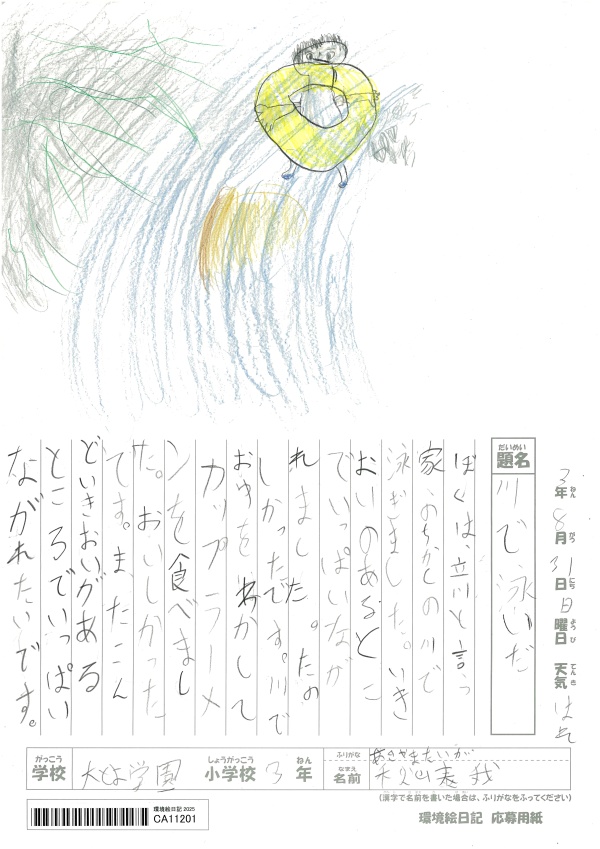 3年 8月 31日 日曜日 天気 はれ
ねん がつ にち ようび てんき
だいめい
題名
川で泳いだ
ぼくは、立川と言う
家のちかくの川で
泳ぎました。いき
おいのあるとこ
でいっぱいなが
れました。たの
しかったです。川で
おゆをわかして
カップラーメ
ンを食べまし
た。おいしかった
です。またこん
どいきおいがある
ところでいっぱい
ながれたいです。
がっこう
学校
学園
しょうがっこう
小学校
3
ねん
年
ふりがな
なまえ
名前
(漢字で名前を書いた場合は、ふりがなをふってください)
環境絵日記 2025
CA11201
環境絵日記 応募用紙